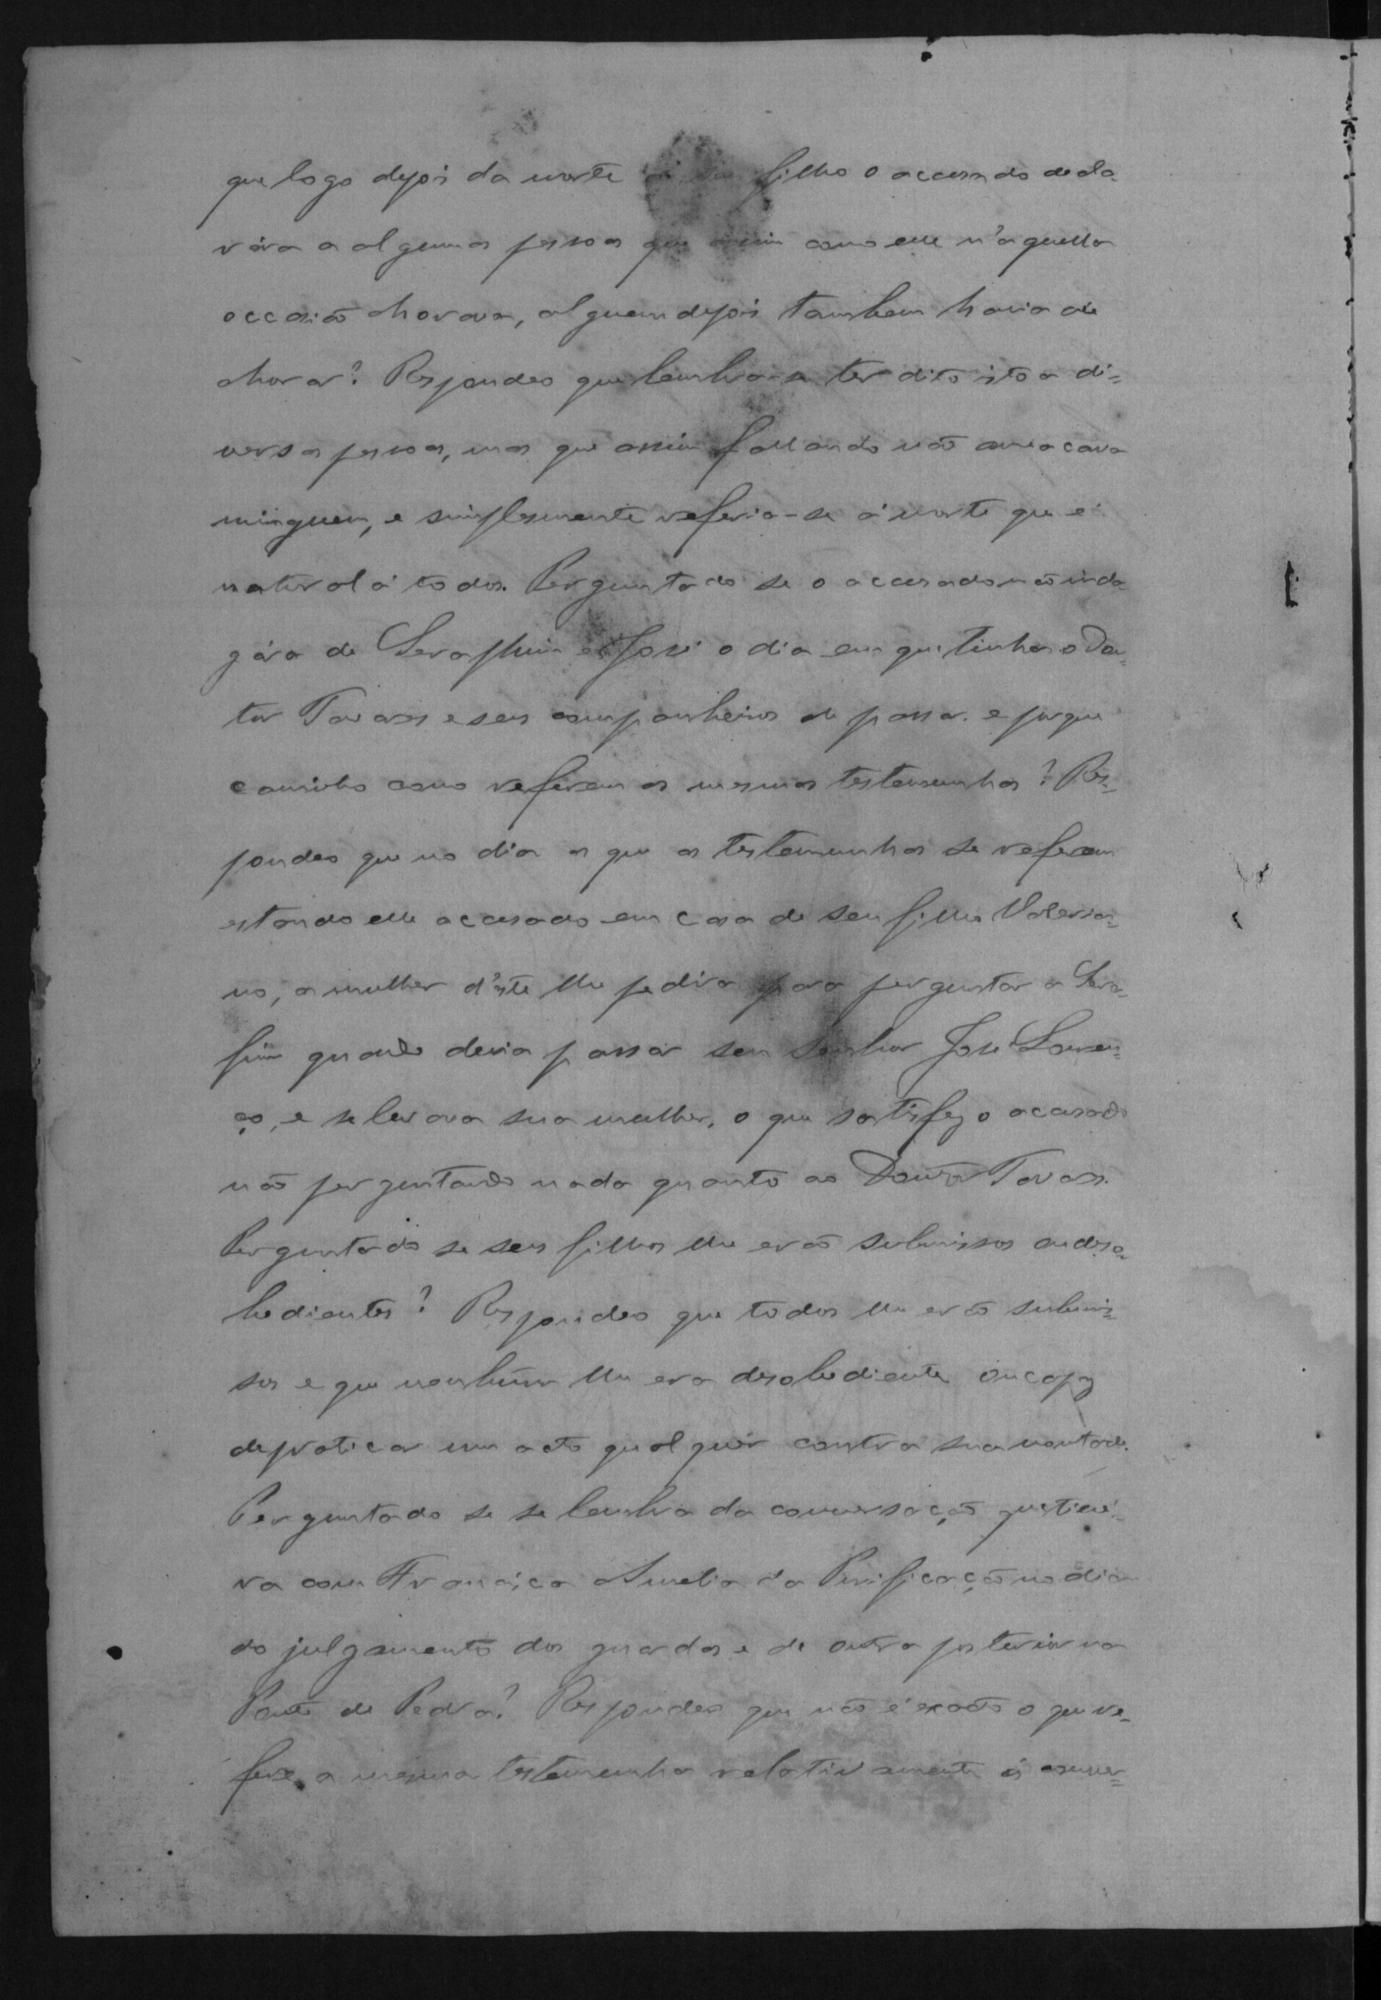 que logo depois da morte de seu filho o accusado decla-
rára a algumas pessoas que assim como elle n'aquella
occasião chorava, alguem depois tambem havia de
chorar? Respondeo que lembra-se ter dito isto a di=
versas pessoas, mas que assim fallando não ameaçava
ninguem, e simplesmente referia-se á morte que é
natural á todos. Perguntado se o accusado não inda-
gára de Seraphim e José o dia em que tinha o Dou-
tor Tavares e seus companheiros de passar e porque
caminho como referem as mesmas testemunhas? Res-
pondeo que no dia a que as testemunhas se referem
estando elle accusado em casa de seu filho Valeria=
no, a mulher d'este lhe pedira para perguntar a Sera-
fim quando devia passar seu Senhor José Louren-
ço, e se levava sua mulher, o que satisfez o accusado
não perguntando nada quanto ao Doutor Tavares.
Perguntado se seus filhos lhe erão submissos ou deso-
bedientes? Respondeo que todos lhe erão submis=
sos e que nenhum lhe era desobediente ou capaz
de praticar um acto qualquer contra sua vontade.
Perguntado se se lembra da conversação que tive-
ra com Francisca Aurelia da Purificação no dia
do julgamento dos guardas e de outra posterior na
Ponte de Pedra? Respondeo que não é exacto o que re-
fere a mesma testemunha relativamente á conver=